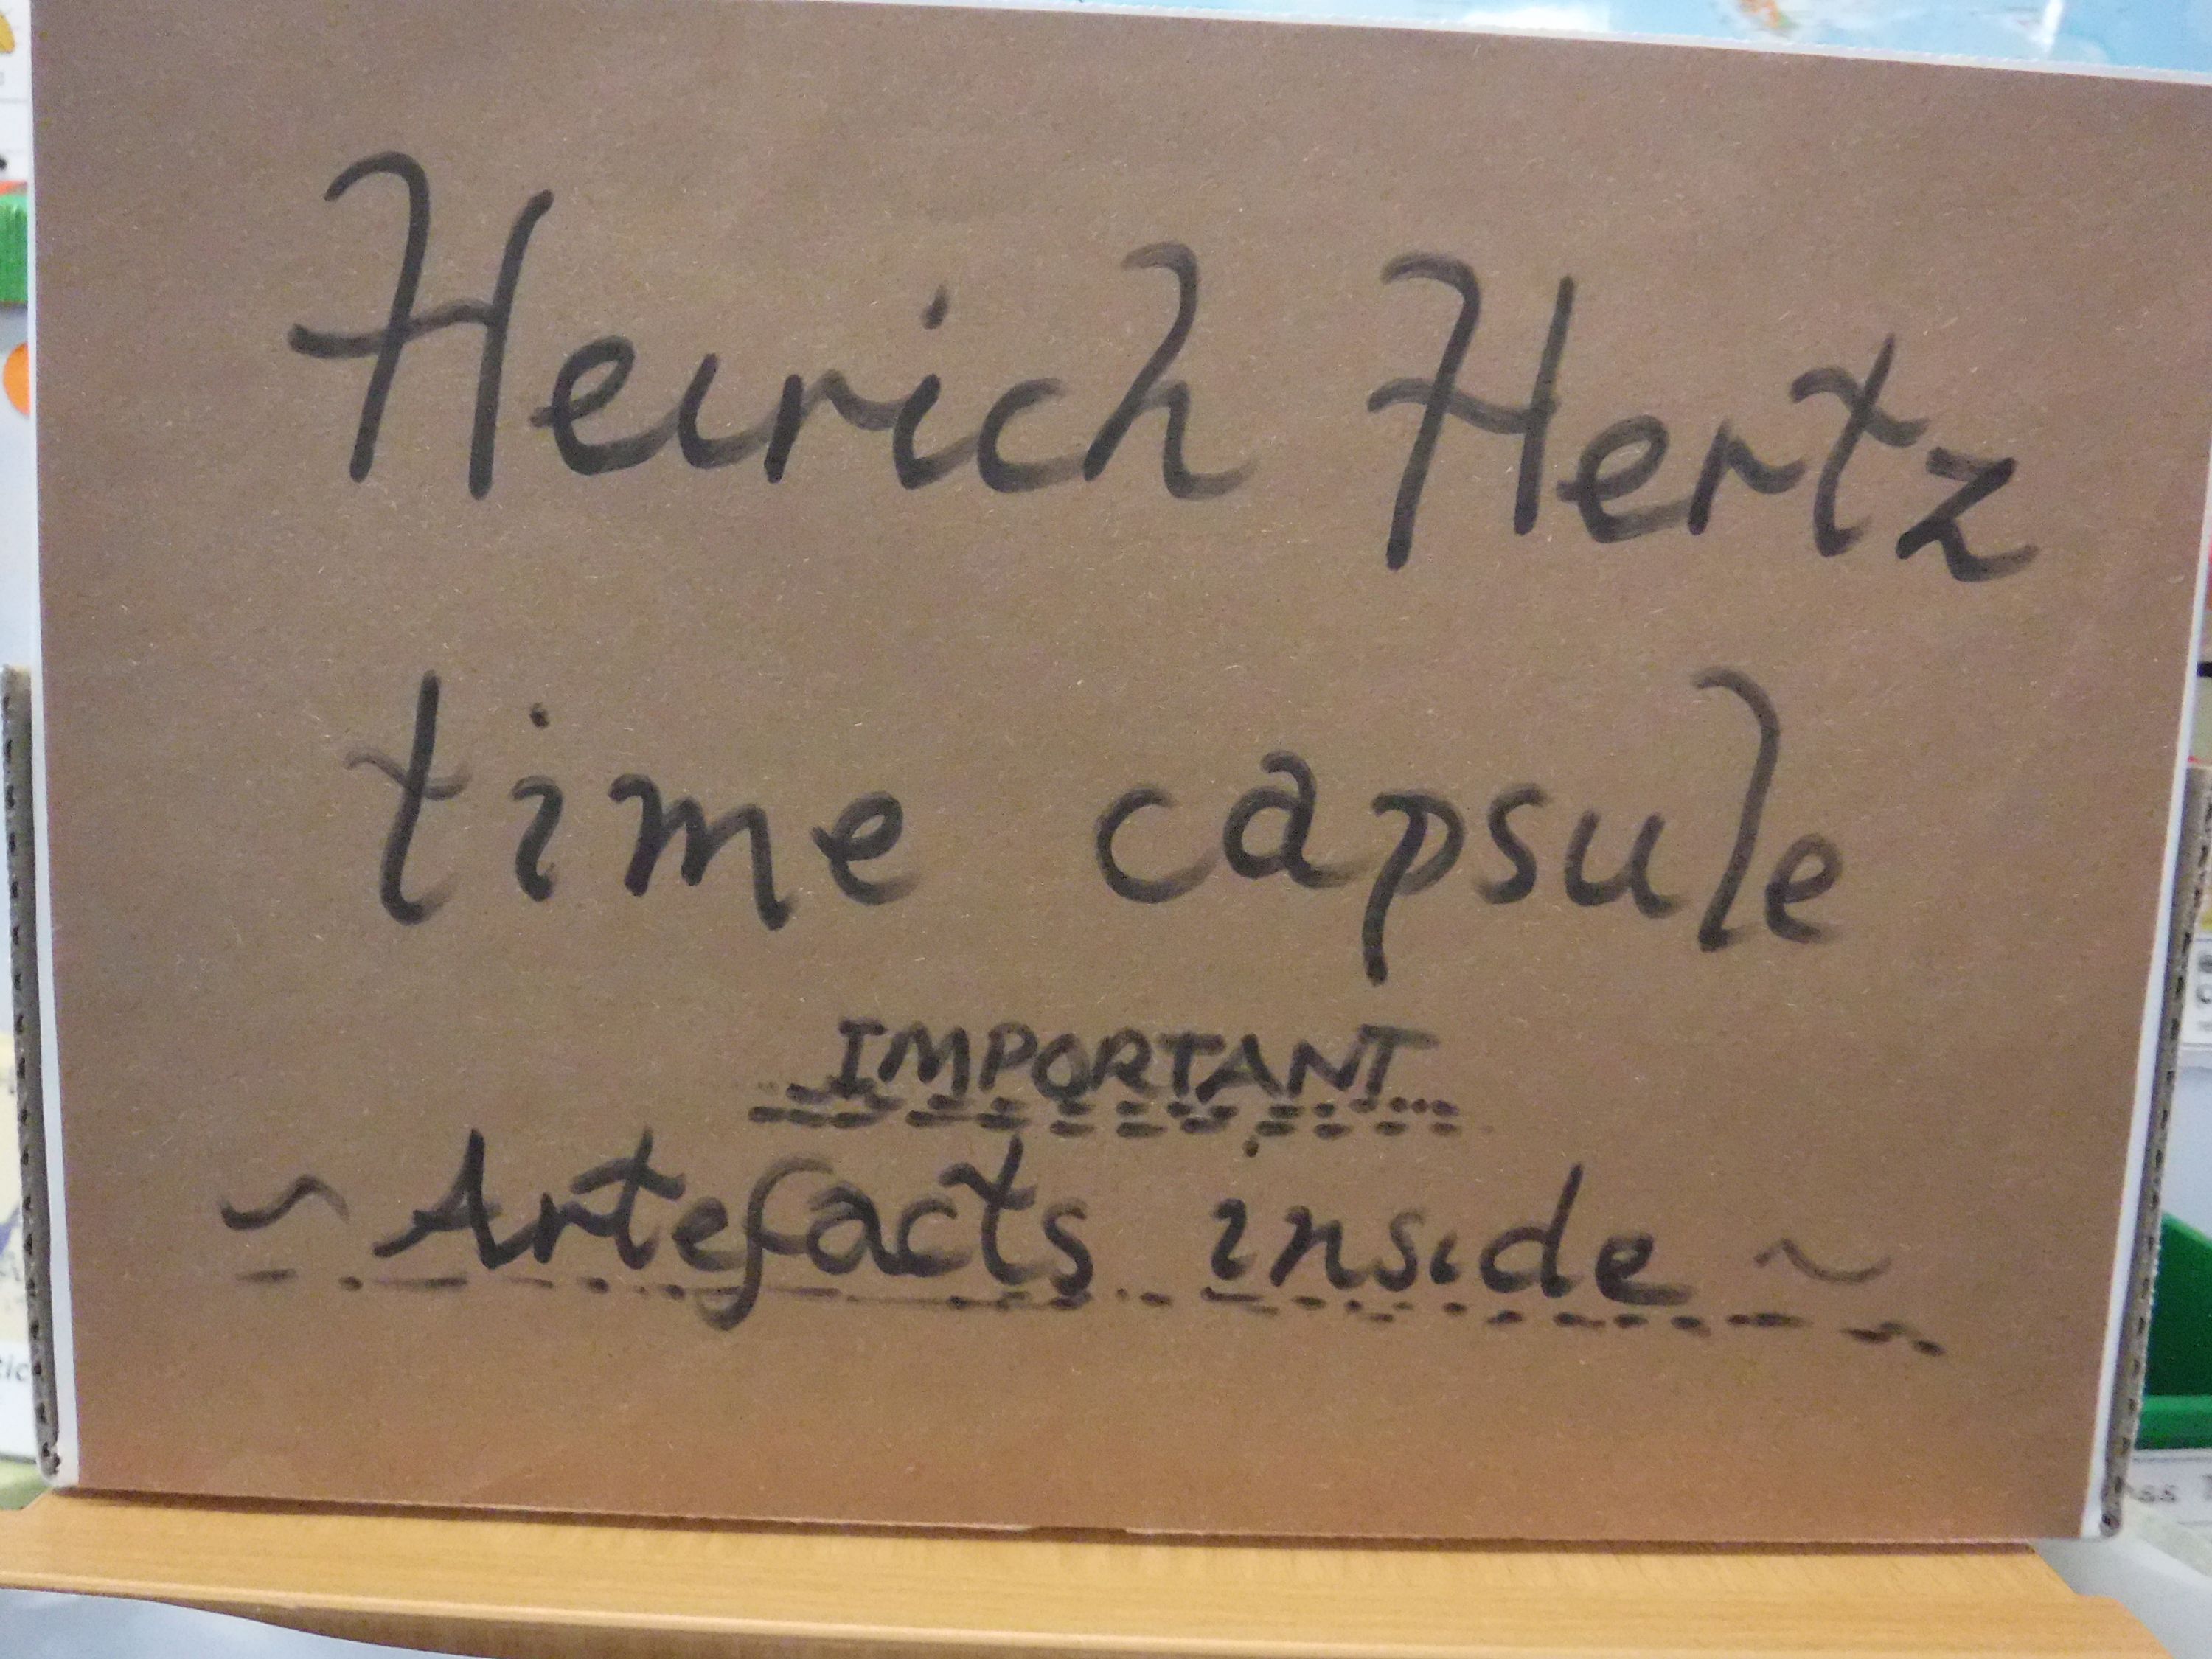 Heirich Hertz
time capsule
IMPORTANT
~ Artefacts inside ~